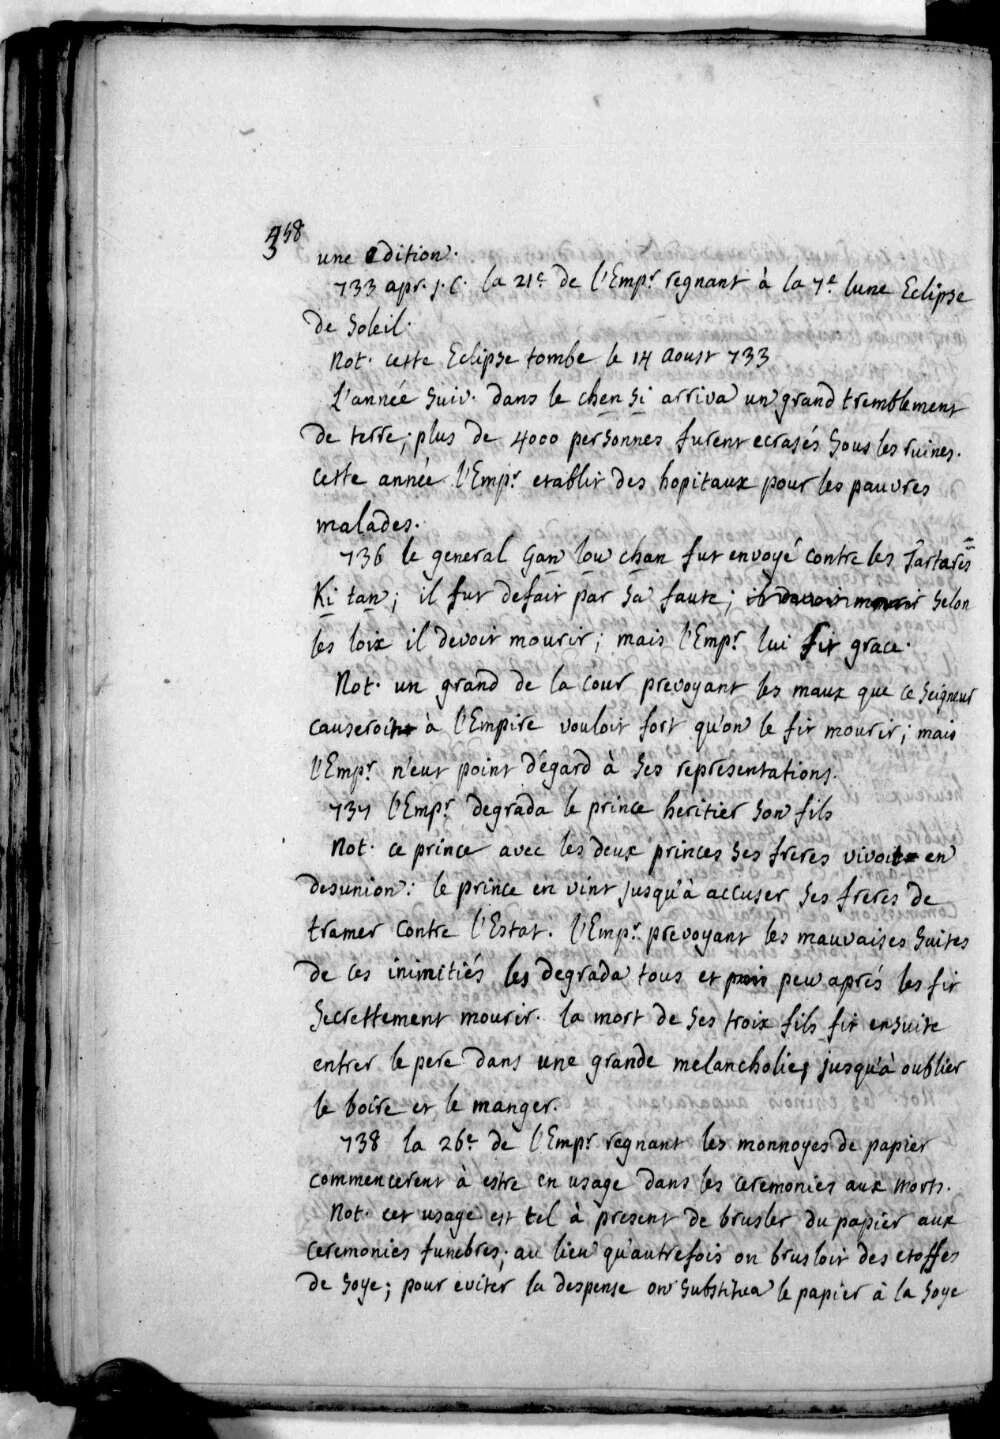 458
une edition.
733 apr. j. C. la 21e. de l'Empr. regnant à la 7e. lune Eclipse
de Soleil.
Not. cette Eclipse tombe le 14 Aoust 733
L'année suiv. dans le chen si arriva un grand tremblement
de terre, plus de 4000 personnes furent ecrasés sous les ruines.
cette année l'Empr. etablit des hopitaux pour les pauvres
malades.
736 le general Gan lou chan fut envoyé contre les Tartares
Ki tan; il fut defait par sa faute; il devoit mourir selon
les loix il devoit mourir; mais l'Empr. lui fit grace.
Not. un grand de la cour prevoyant les maux que ce seigneur
causeroit à l'Empire vouloit fort qu'on le fit mourir; mais
l'Empr. n'eut point d'égard à ses representations.
737 l'Empr. degrada le prince heritier son fils
Not. ce prince avec les deux princes ses freres vivoit en
desunion: le prince en vint jusqu'à accuser ses freres de
tramer contre l'Estat. l'Empr. prevoyant les mauvaises suites
de ces inimitiés les degrada tous et peu aprés les fit
secrettement mourir. la mort de ses trois fils fit ensuite
entrer le pere dans une grande melancholie, jusqu'à oublier
le boire et le manger.
738 la 26e. de l'Empr. regnant les monnoyes de papier
commencerent à estre en usage dans les ceremonies aux morts.
Not. cet usage est tel à present de brusler du papier aux
ceremonies funebres; au lieu qu'autrefois on brusloit des etoffes
de soye; pour eviter la despense on substitua le papier à la soye